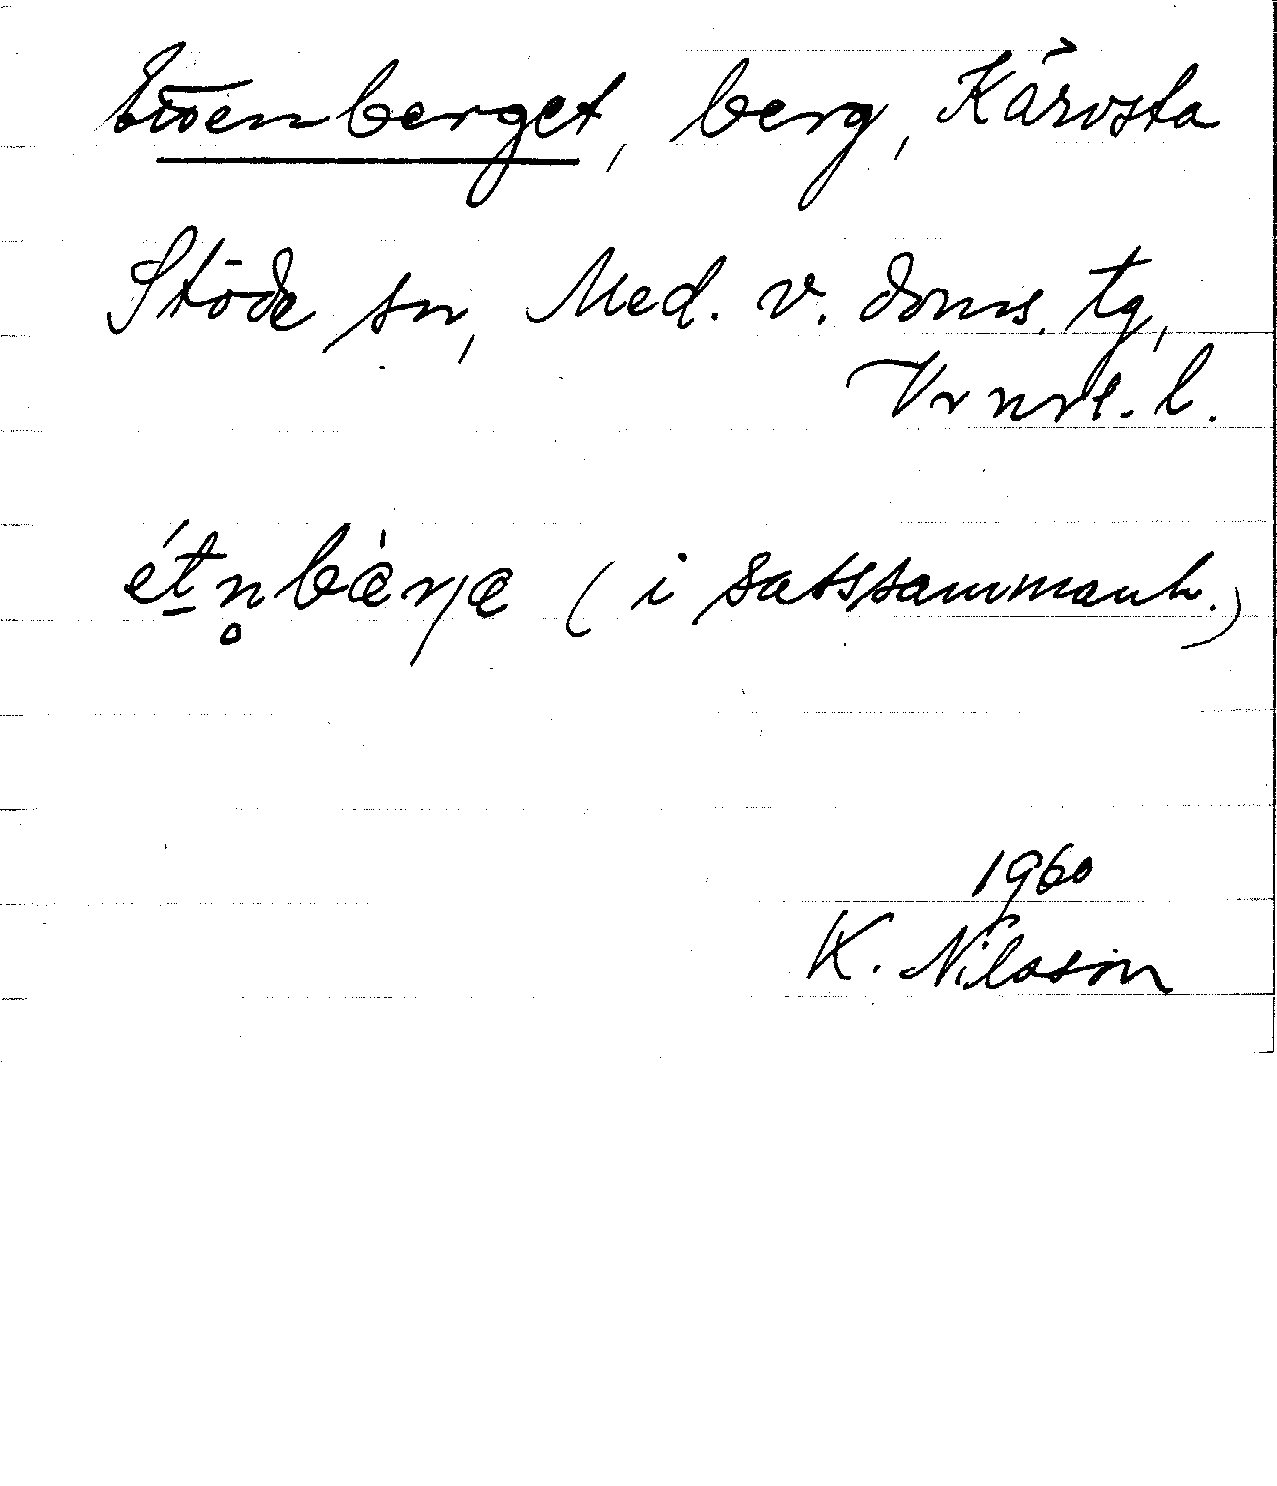 Etoenberget, berg, Kärvsta
Stöde sn, Med. v. doms. tg,
Vrnrl. l.
ét̠n̥bæ̀rjæ (i satssammanh.)
1960
K. Nilsson